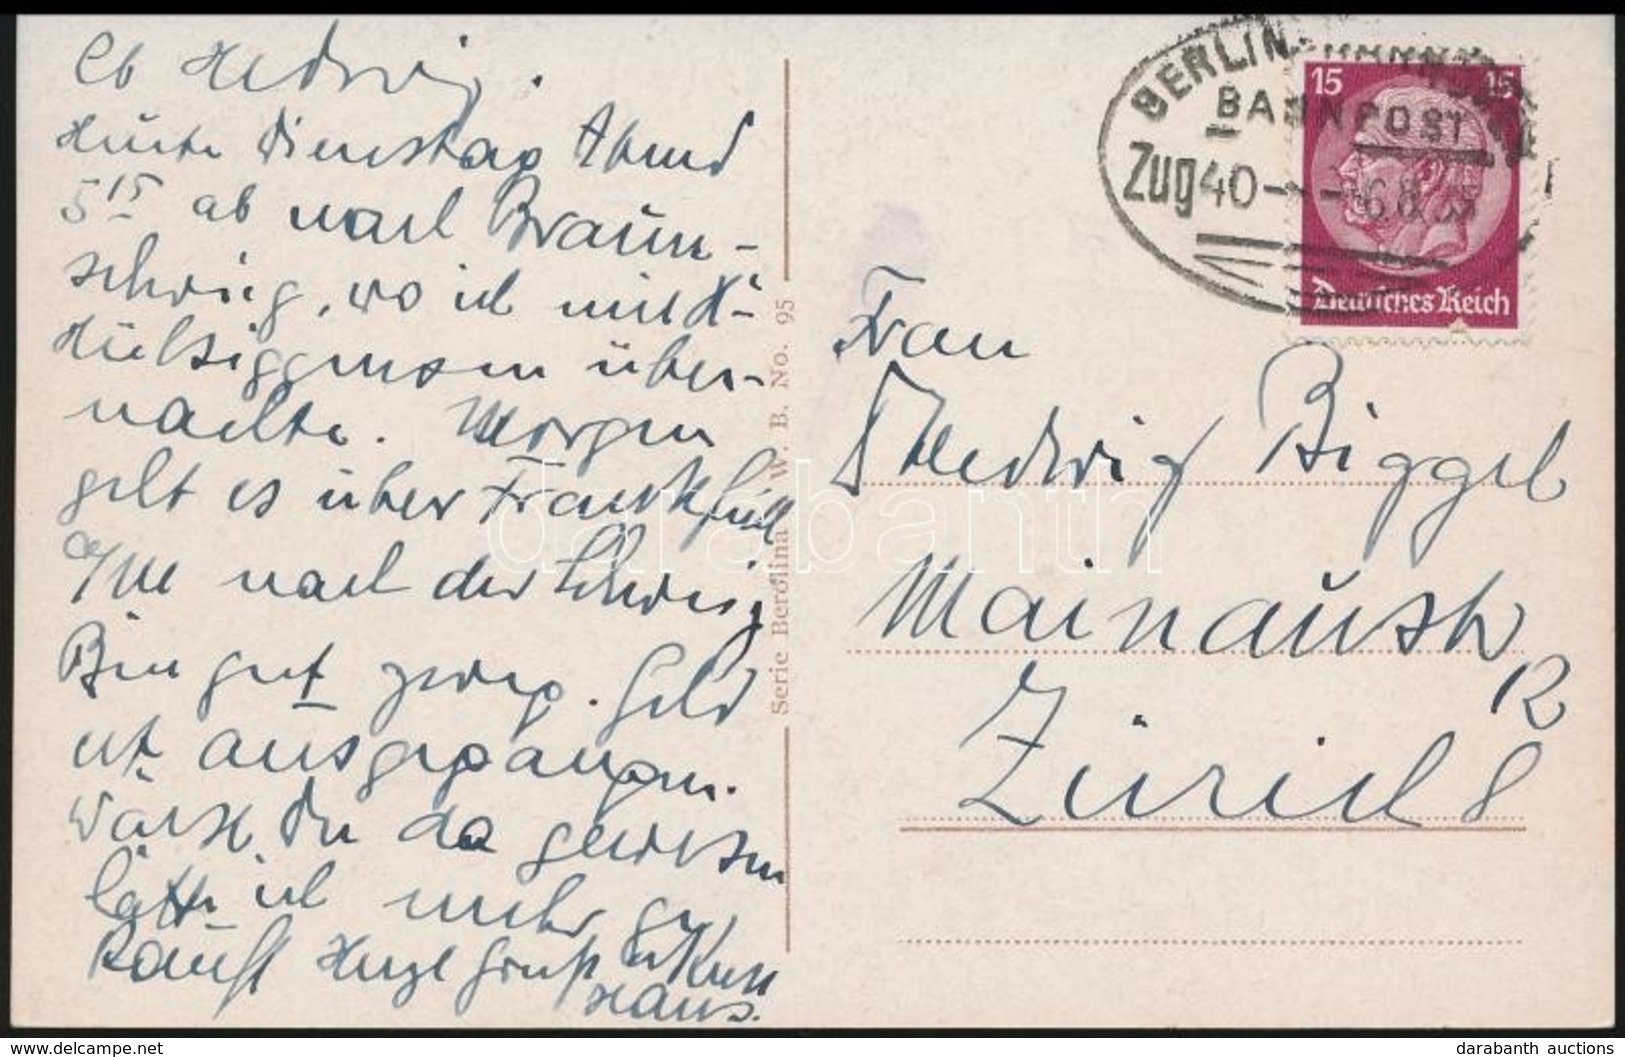 Lb Hedwig.
Heute Dienstag Abend
5 15 ab nach Braun-
schweig, wo ich mit H-
über-
nachte. Morgen
geht es über Frankfurt
nach der Schweiz
Bin gut zweg. Geld
ist ausgegangen.
Wärst Du da gewesen
hätte ich mehr ge
kauft Herzl Gruss u Kuss
Hans.
Serie Berolina W. B. No. 95
BERLIN-HANNOVER
BAHNPOST
Zug 40 - 6.8.35
15 15
Deutsches Reich
Frau
Hedwig Biggel
Mainaustr
12
Zürich 8
darabanth
delcampe.net
darabanth auctions